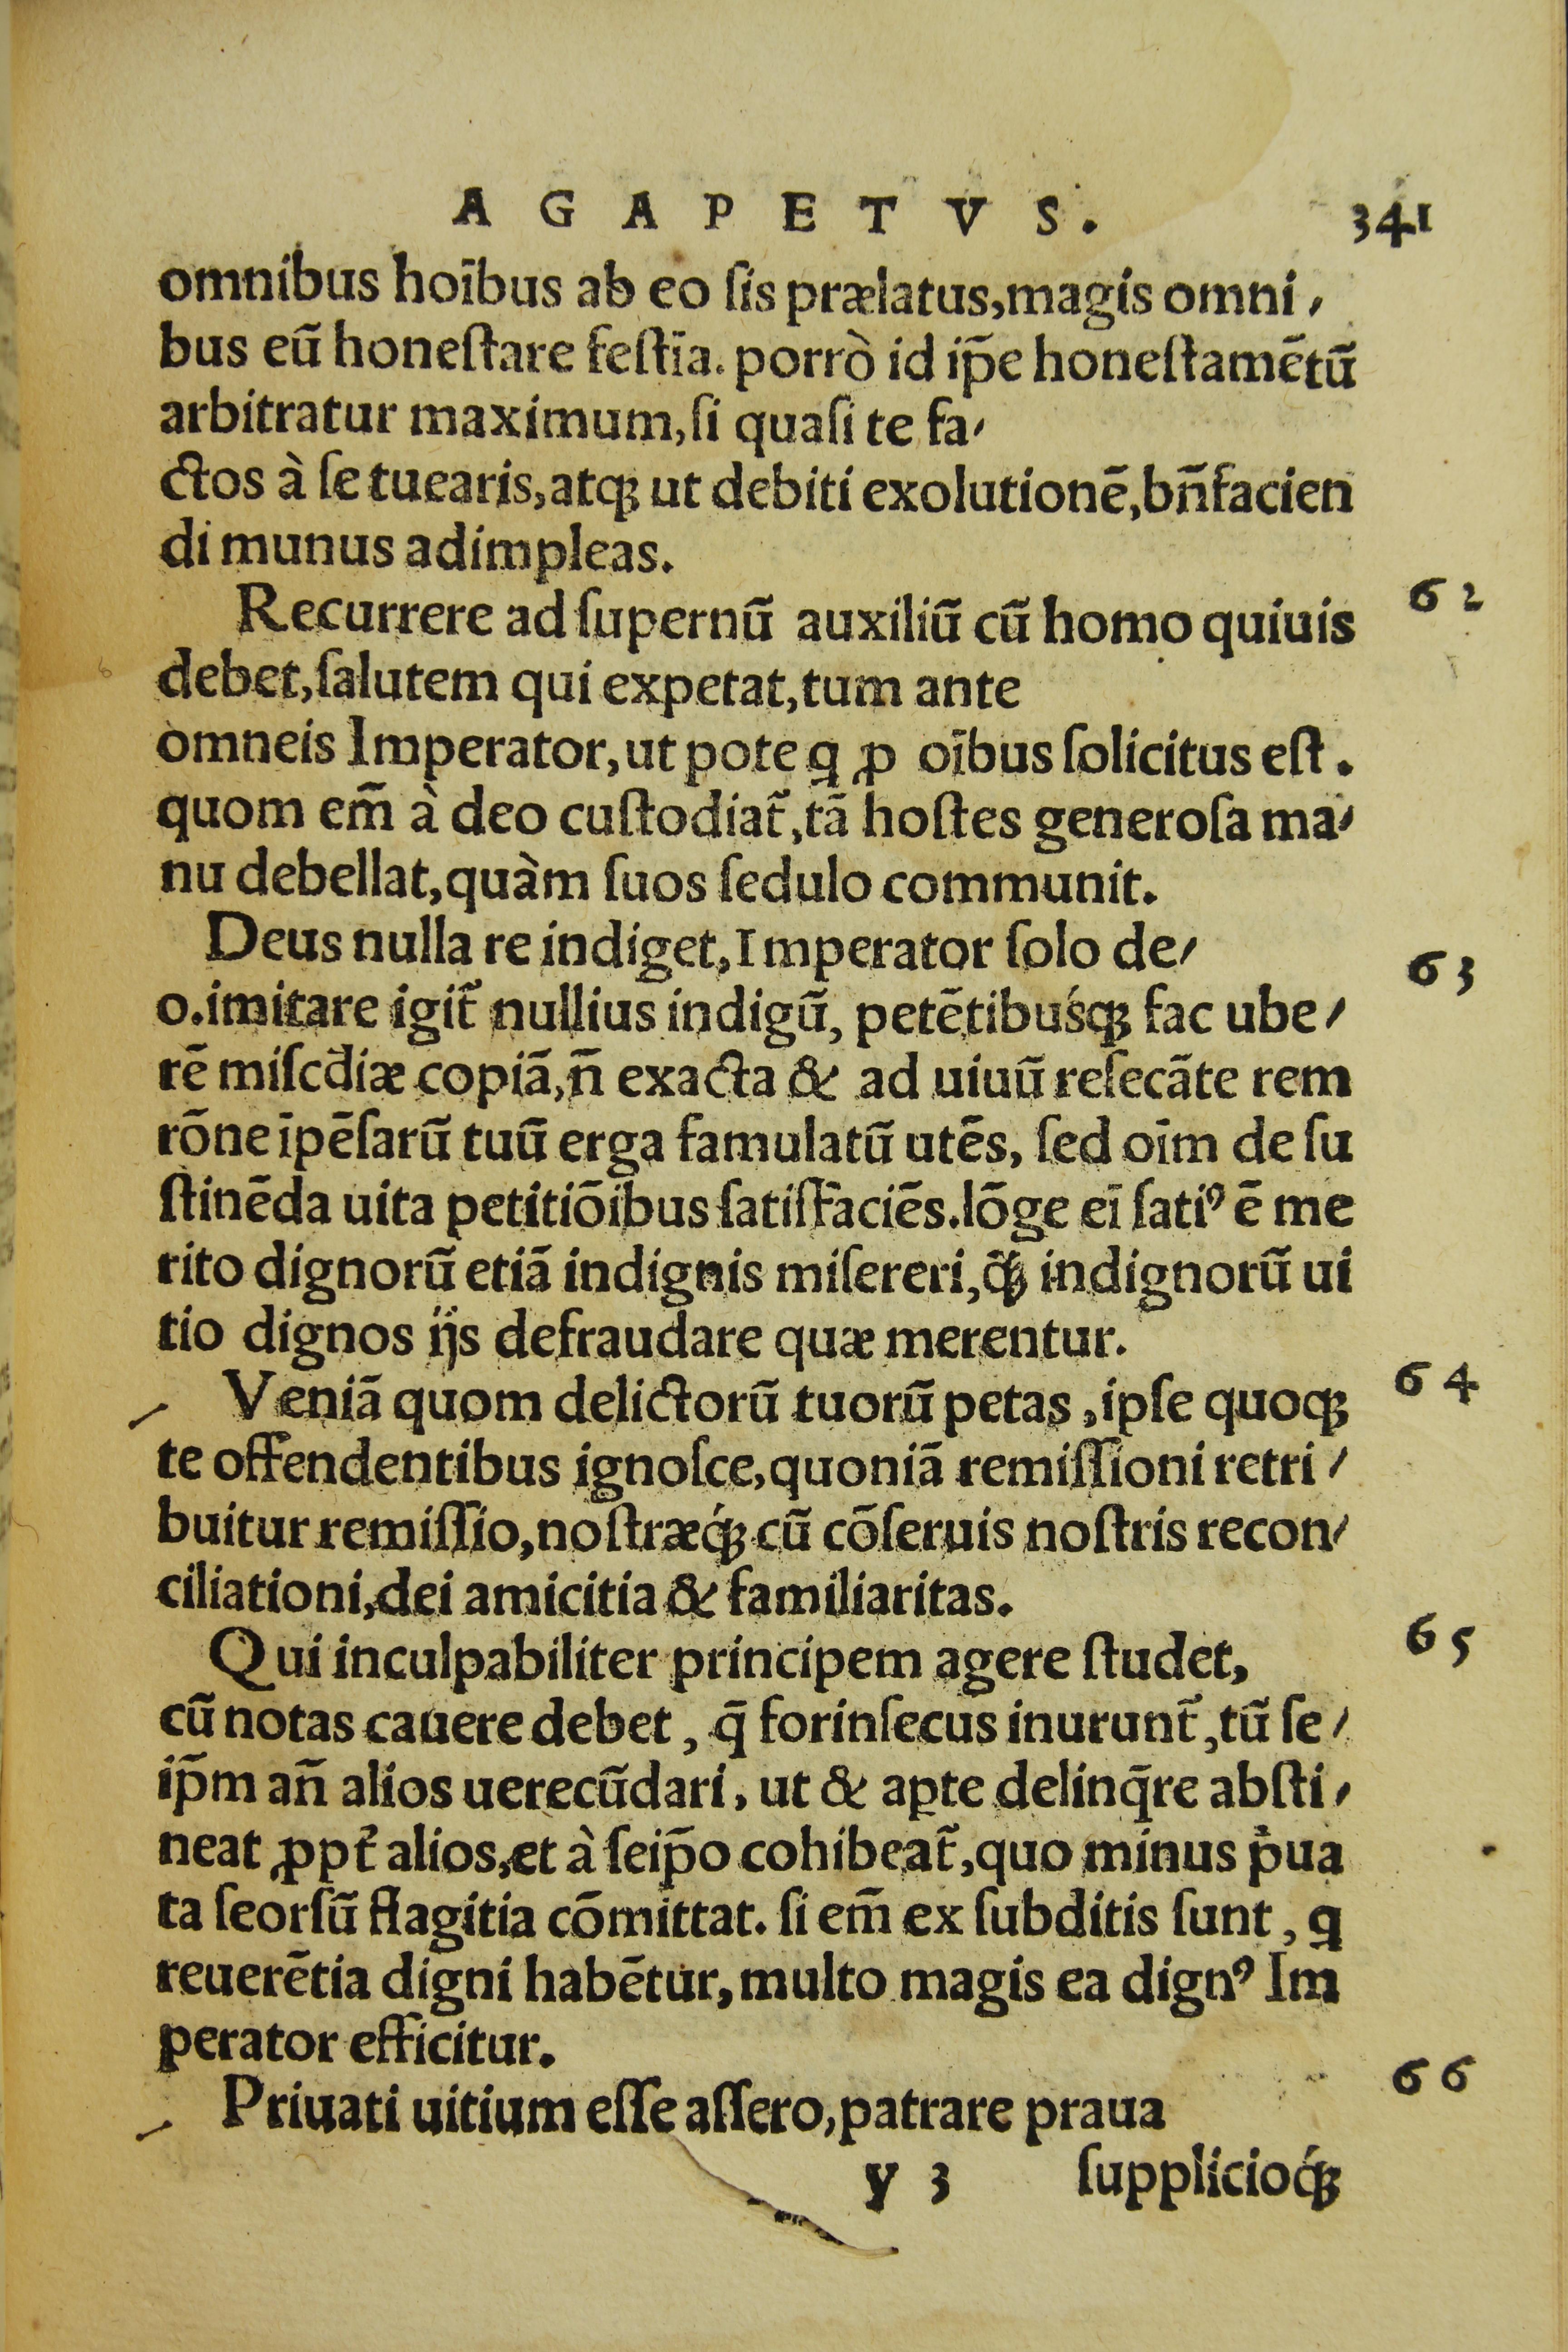 AGAPETVS. 341
omnibus hoībus ab eo ſis prælatus,magis omni⸗
bus eū honeſtare feſtīa. porrò id ip̄e honeſtamētū
arbitratur maximum,ſi quaſi te fa⸗
ctos à ſe tuearis,atqꝫ ut debiti exolutionē,bn̄facien
di munus adimpleas.
Recurrere ad ſupernū auxiliū cū homo quiuis 62
debet,ſalutem qui expetat,tum ante
omneis Imperator,ut pote ꝗ ꝓ oībus ſolicitus eſt.
quom em̄ à deo cuſtodiat̃,tā hoſtes generoſa ma⸗
nu debellat,quàm ſuos ſedulo communit.
Deus nulla re indiget,Imperator ſolo de⸗ 63
o.imitare igit̃ nullius indigū, petētibuśqꝫ fac ube⸗
rē miſcd̄iæ copiā,n̄ exacta & ad uiuū reſecāte rem
rōne īpēſarū tuū erga famulatū utēs, ſed oīm de ſu
ſtinēda uita petitiōibus ſatiſfaciēs.lōge eī ſatiꝰ ē me
rito dignorū etiā indignis miſereri,q̈̃ꝫ indignorū ui
tio dignos ijs defraudare quæ merentur.
Veniā quom delictorū tuorū petas ,ipſe quoqꝫ 64
te offendentibus ignoſce,quoniā remiſſioni retri⸗
buitur remiſſio,noſtræq́ꝫ cū cōſeruis noſtris recon⸗
ciliationi,dei amicitia & familiaritas.
Qui inculpabiliter principem agere ſtudet, 65
cū notas cauere debet , q̄ forinſecus inurunt̃,tū ſe⸗
ip̄m an̄ alios uerecūdari, ut & apte delinq̄re abſti⸗
neat ꝓpt̃ alios,et à ſeip̄o cohibeat̃,quo minus p̓ua
ta ſeorſū flagitia cōmittat. ſi em̄ ex ſubditis ſunt , ꝗ
reuerētia digni habētur,multo magis ea dignꝰ Im
perator efficitur.
Priuati uitium eſſe aſſero,patrare praua 66
y 3 ſupplicioq́ꝫ